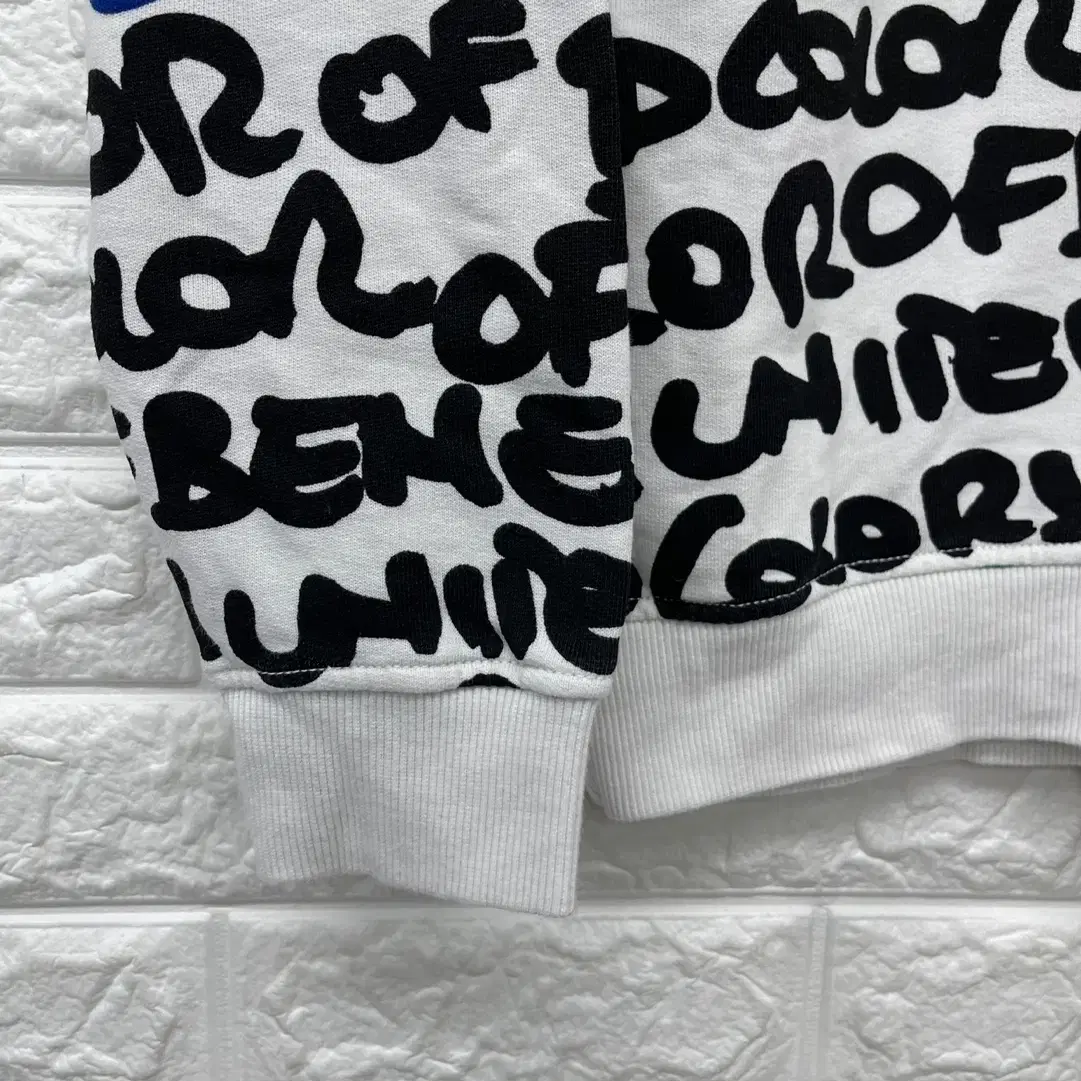 OR OF
LOR OF
BENE
UNITE
D COLOR
OR OF
UNITE
COLORS